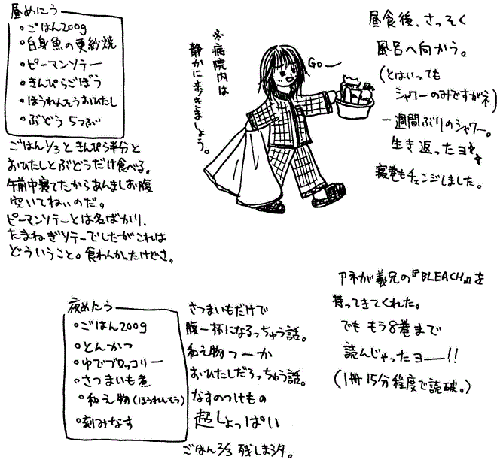 昼めにう
・ごはん200g
・白身魚の更紗焼
・ピーマンソテー
・きんぴらごぼう
・ほうれんそうおひたし
・ぶどう 5つぶ
ごはん1/3ときんぴら半分と
おひたしとぶどうだけ食べる。
午前中寝てたからあんましお腹
空いてねいのだ。
ピーマンソテーとは名ばかり、
たまねぎソテーでしたがこれは
どういうこと。食わんかったけどさ。
※病院内は
静かに歩きましょう。
GO―
昼食後、さっそく
風呂へ向かう。
(とはいっても
シャワーのみですがネ)
一週間ぶりのシャワー。
生き返ったヨ
寝巻もチェンジしました。
夜めにう
・ごはん200g
・とんかつ
・ゆでブロッコリー
・さつまいも煮
・和え物(ほうれんそう)
・刻みなす
さつまいもだけで
腹一杯になるっちゅう話。
和え物っつーか
おひたしだろっちゅう話。
なすのつけもの
超しょっぱい
ごはん2/3残しますタ。
アネが義兄の『BLEACH』を
持ってきてくれた。
でももう8巻まで
読んじゃったヨ――!!
(1冊15分程度で読破。)